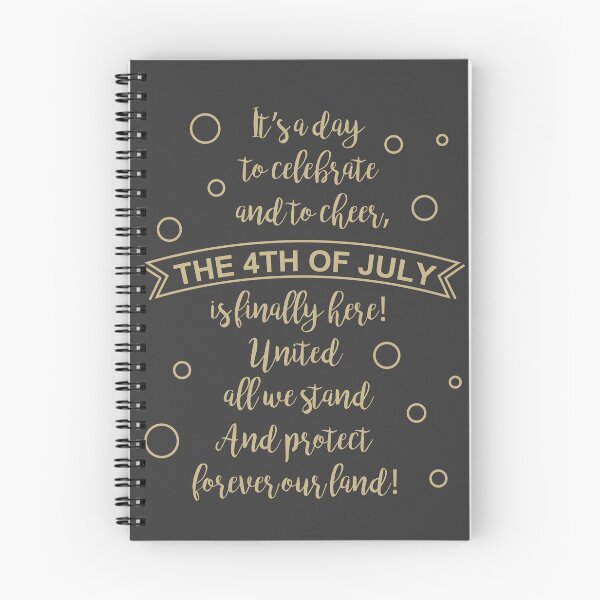 It's a day
to celebrate
and to cheer,
THE 4TH OF JULY
is finally here!
United
all we stand
And protect
forever our land!